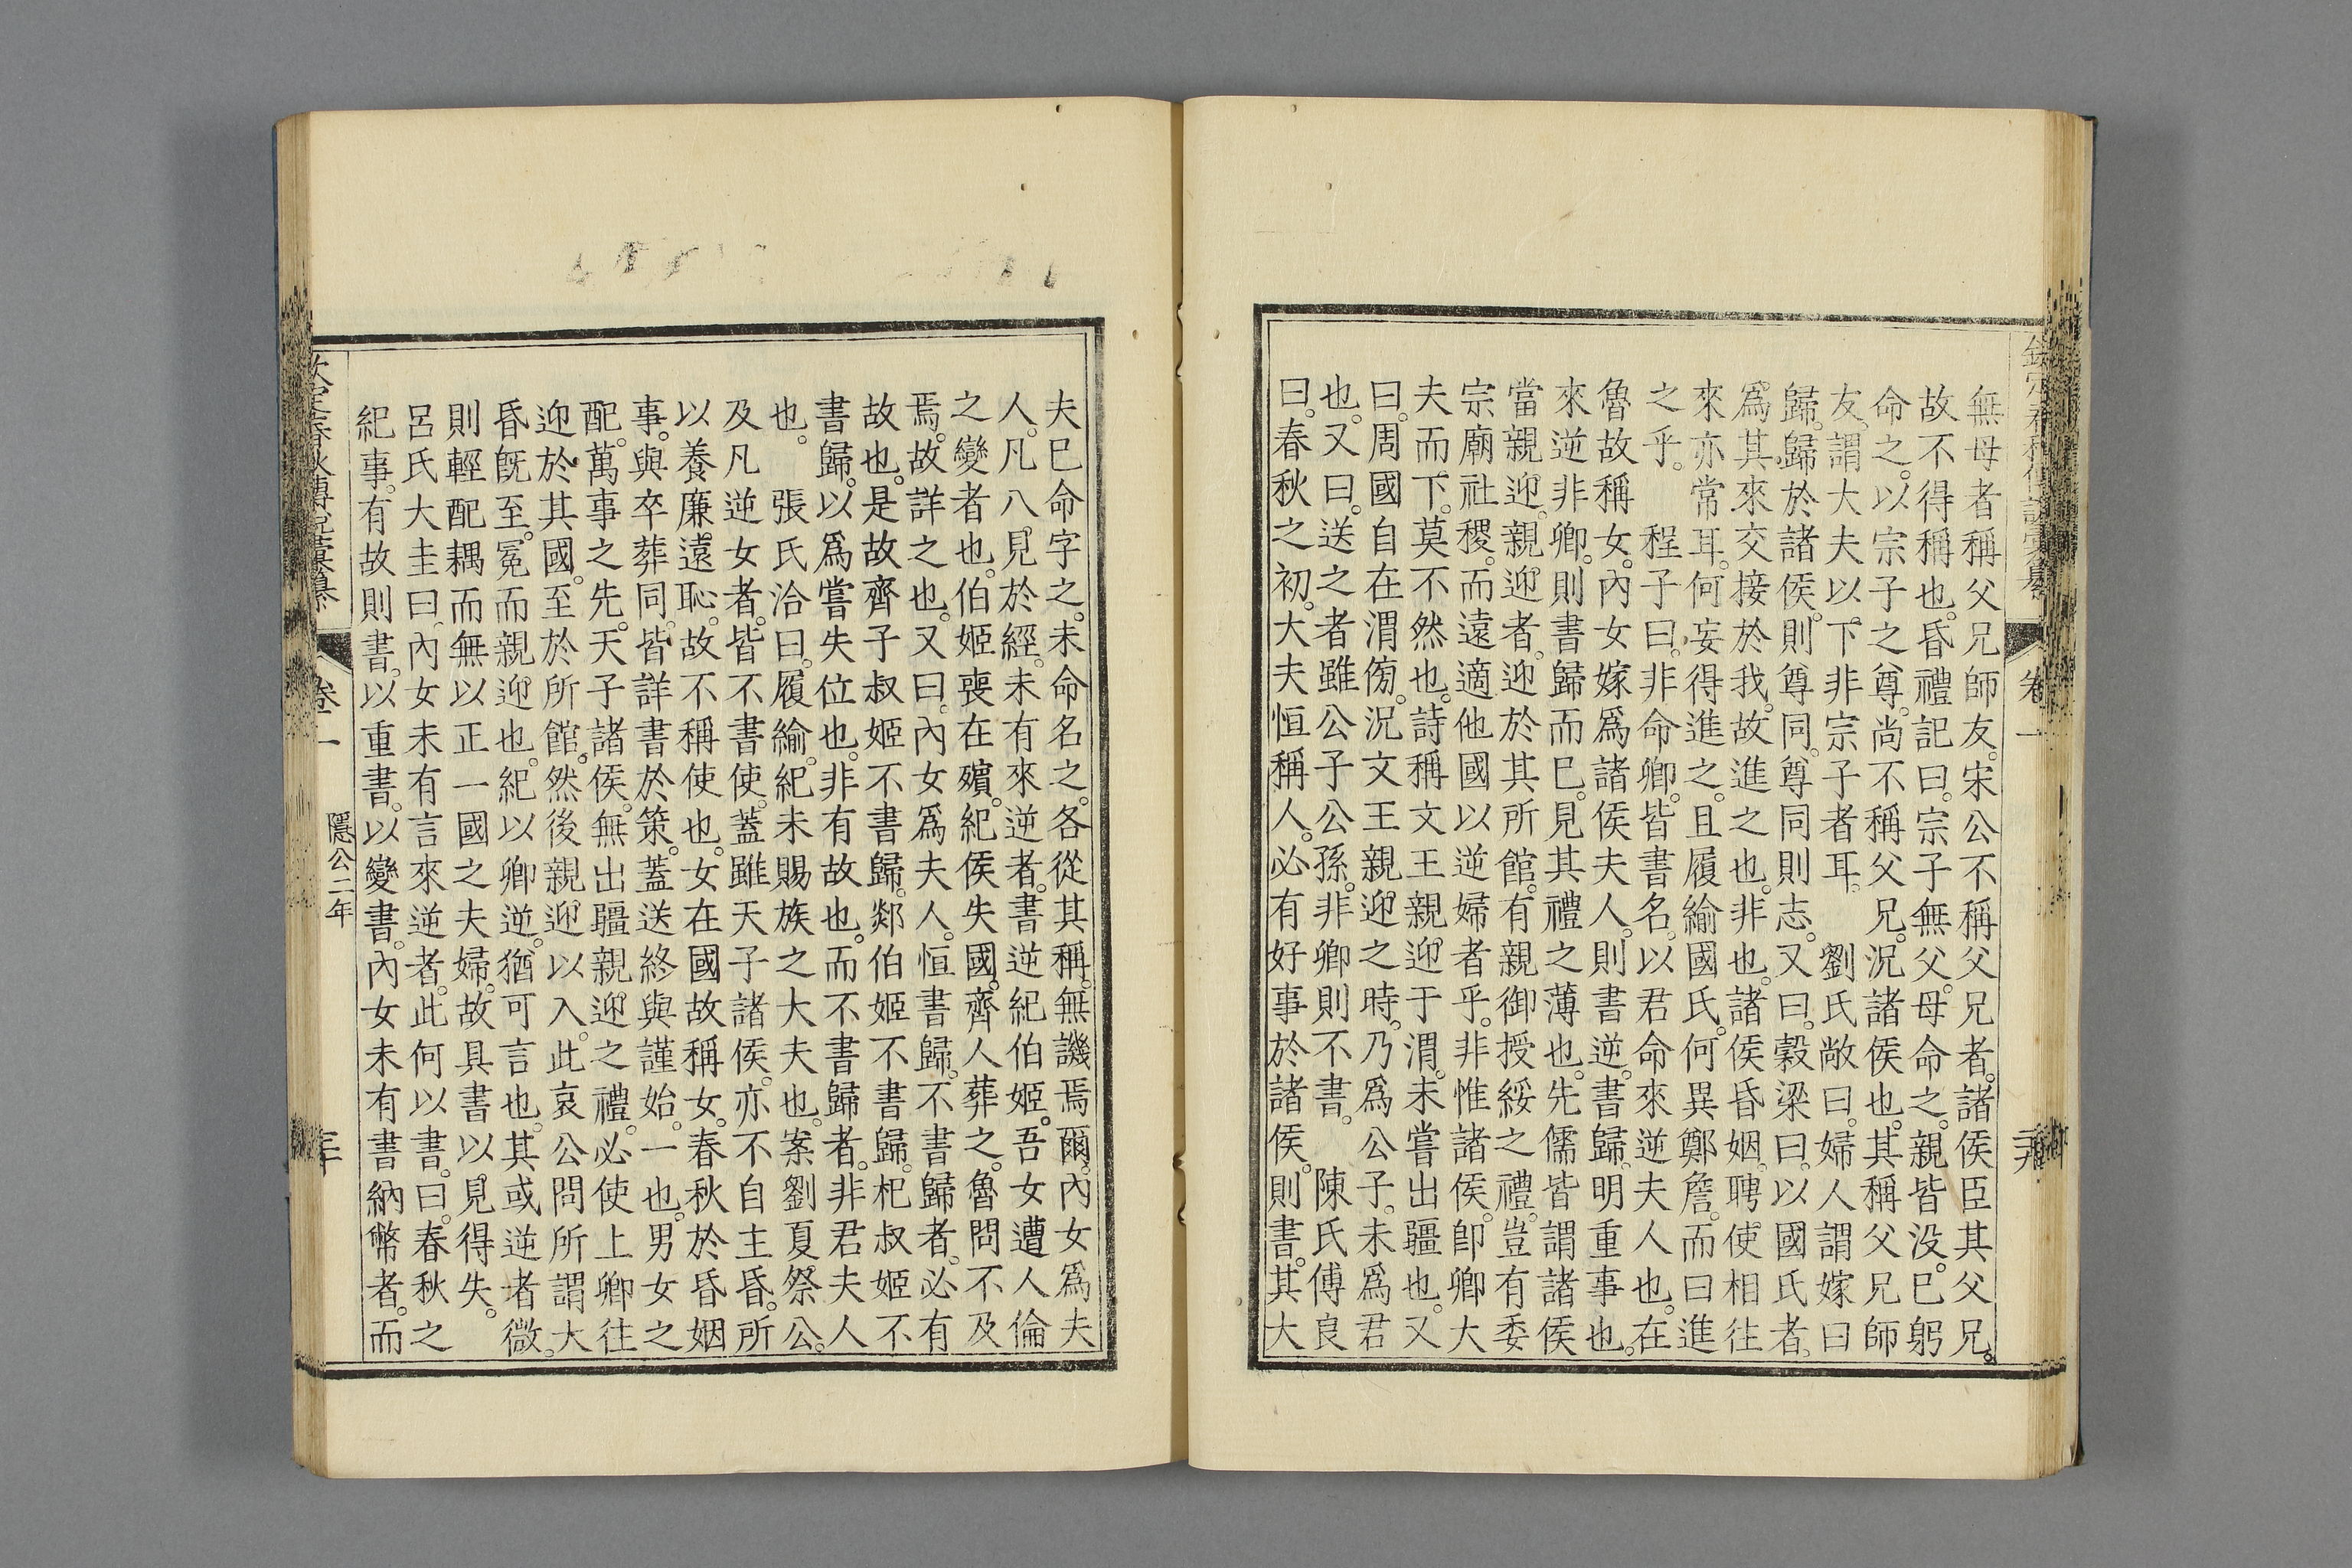 無母者稱父兄師友。宋公不稱父兄者。諸侯臣其父兄。
故不得稱也。昏禮記曰。宗子無父。母命之。親皆没。已躬
命之。以宗子之尊。尚不稱父兄。況諸侯也。其稱父兄師
友。謂大夫以下。非宗子者耳。　劉氏敞曰。婦人謂嫁曰
歸。歸於諸侯。則尊同。尊同則志。又曰。穀梁曰。以國氏者。
爲其來交接於我。故進之也。非也。諸侯昏姻。聘使相往
來亦常耳。何妄得進之。且履緰國氏。何異鄭詹。而曰進
之乎。　程子曰。非命卿。皆書名。以君命來逆夫人也。在
魯故稱女。內女嫁爲諸侯夫人。則書逆。書歸。明重事也。
來逆非卿。則書歸而巳。見其禮之薄也。先儒皆謂諸侯
當親迎。親迎者。迎於其所館。有親御授綏之禮。豈有委
宗廟社稷。而遠適他國以逆婦者乎。非惟諸侯。卽卿大
夫而下。莫不然也。詩稱文王親迎于渭。未嘗出疆也。又
曰。周國自在渭傍。況文王親迎之時。乃爲公子。未爲君
也。又曰。送之者雖公子公孫。非卿則不書。　陳氏傅良
曰。春秋之初。大夫恒稱人。必有好事於諸侯。則書。其大
卷一
夫巳命字之。未命名之。各從其稱。無譏焉爾。內女爲夫
人。凡八。見於經。未有來逆者。書逆紀伯姬。吾女遭人倫
之變者也。伯姬喪在殯。紀侯失國。齊人葬之。魯問不及
焉。故詳之也。又曰。內女爲夫人。恒書歸。不書歸者。必有
故也。是故齊子叔姬不書歸。郯伯姬不書歸。杞叔姬不
書歸。以爲嘗失位也。非有故也。而不書歸者。非君夫人
也。　張氏洽曰。履緰。紀未賜族之大夫也。案劉夏祭公。
及凡逆女者。皆不書使。蓋雖天子諸侯。亦不自主昏。所
以養廉遠恥。故不稱使也。女在國故稱女。春秋於昏姻
事。與卒葬同。皆詳書於策。蓋送終與謹始。一也。男女之
配。萬事之先。天子諸侯。無出疆親迎之禮。必使上卿往
迎於其國。至於所館。然後親迎以入。此哀公問所謂大
昏旣至。冕而親迎也。紀以卿逆。猶可言也。其或逆者微。
則輕配耦而無以正一國之夫婦。故具書以見得失。
呂氏大圭曰。內女未有言來逆者。此何以書。曰。春秋之
紀事。有故則書。以重書。以變書。內女未有書納幣者。而
欽定春秋傳說彙纂
卷一
隱公二年
三十